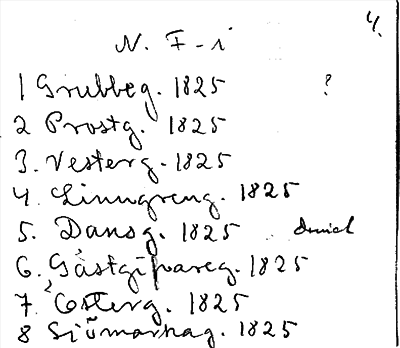 4.
N. F-i
1 Grubbeg. 1825 ?
2 Prostg. 1825
3. Vesterg. 1825
4. Linngreng. 1825
5. Dansg. 1825
6. Gästgifvareg. 1825
7. Österg. 1825
8 Sjömansg. 1825